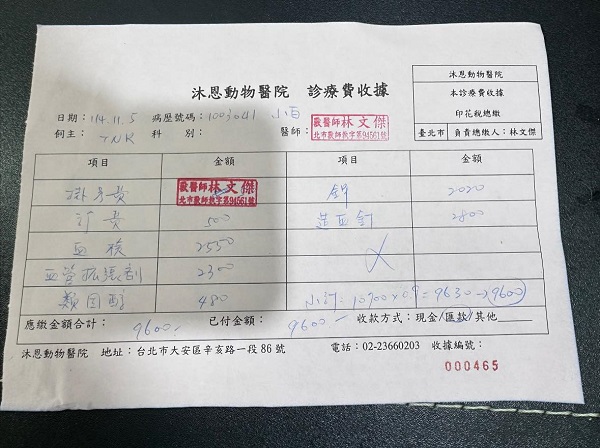 沐恩動物醫院 診療費收據
沐恩動物醫院
本診療費收據
印花稅總繳
臺北市 負責總繳人：林文傑
日期：114.11.5 病歷號碼：1003041 小白
飼主：TNR 科別： 醫師：獸醫師林文傑
北市獸醫師執字第94561號
項目 金額 項目 金額
掛號費 獸醫師林文傑 2020
診費 500 2800
血檢 2550
血管擴張劑 2300
類固醇 480 小計：10700×0.9=9630→9600
應繳金額合計：9600- 已付金額：9600- 收款方式：現金/匯款/其他
沐恩動物醫院 地址：台北市大安區辛亥路一段86號 電話：02-23660203 收據編號：
000465